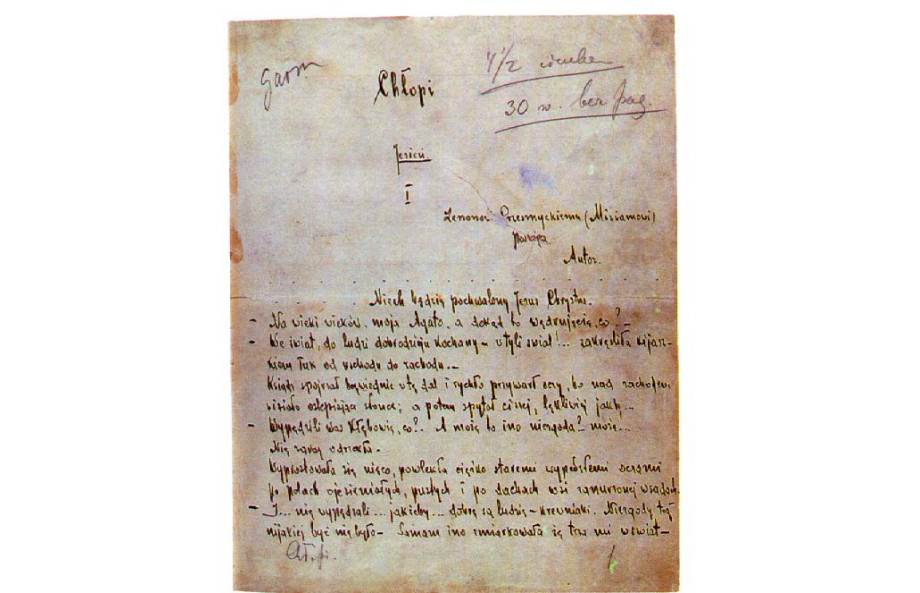 Chłopi
30 w. bez pag.
Jesień
I
Przesmyckiemu (Miriamowi)
Autor.
Niech będzie pochwalony Jezus Chrystus.
- Na wieki wieków, moja Agato, a dokąd to wędrujecie, co? -
- We świat, do ludzi dobrodzieju kochany - w tyli świat!... zakreśliła kijasz-
kiem łuk od wschodu do zachodu. -
Ksiądz spojrzał bezwiednie w tę dal i rychło przywarł oczy, bo nad zachodem
wisiało oślepiające słońce; a potem spytał ciszej, lękliwiej jakby...
- Wypędzili was Kłębowie, co?. A może to ino niezgoda?. może...
Nie zaraz odrzekła.
Wyprostowała się nieco, powlekła ciężko staremi wypełzłemi oczami
po polach ojesieniałych, pustych i po dachach wsi zanurzonej w sadach.
- I... nie wypędzali... jakżeby... dobre są ludzie - krewniaki. Niezgody też
nijakiej być nie było - Samam ino zmiarkowała że trza mi w świat -